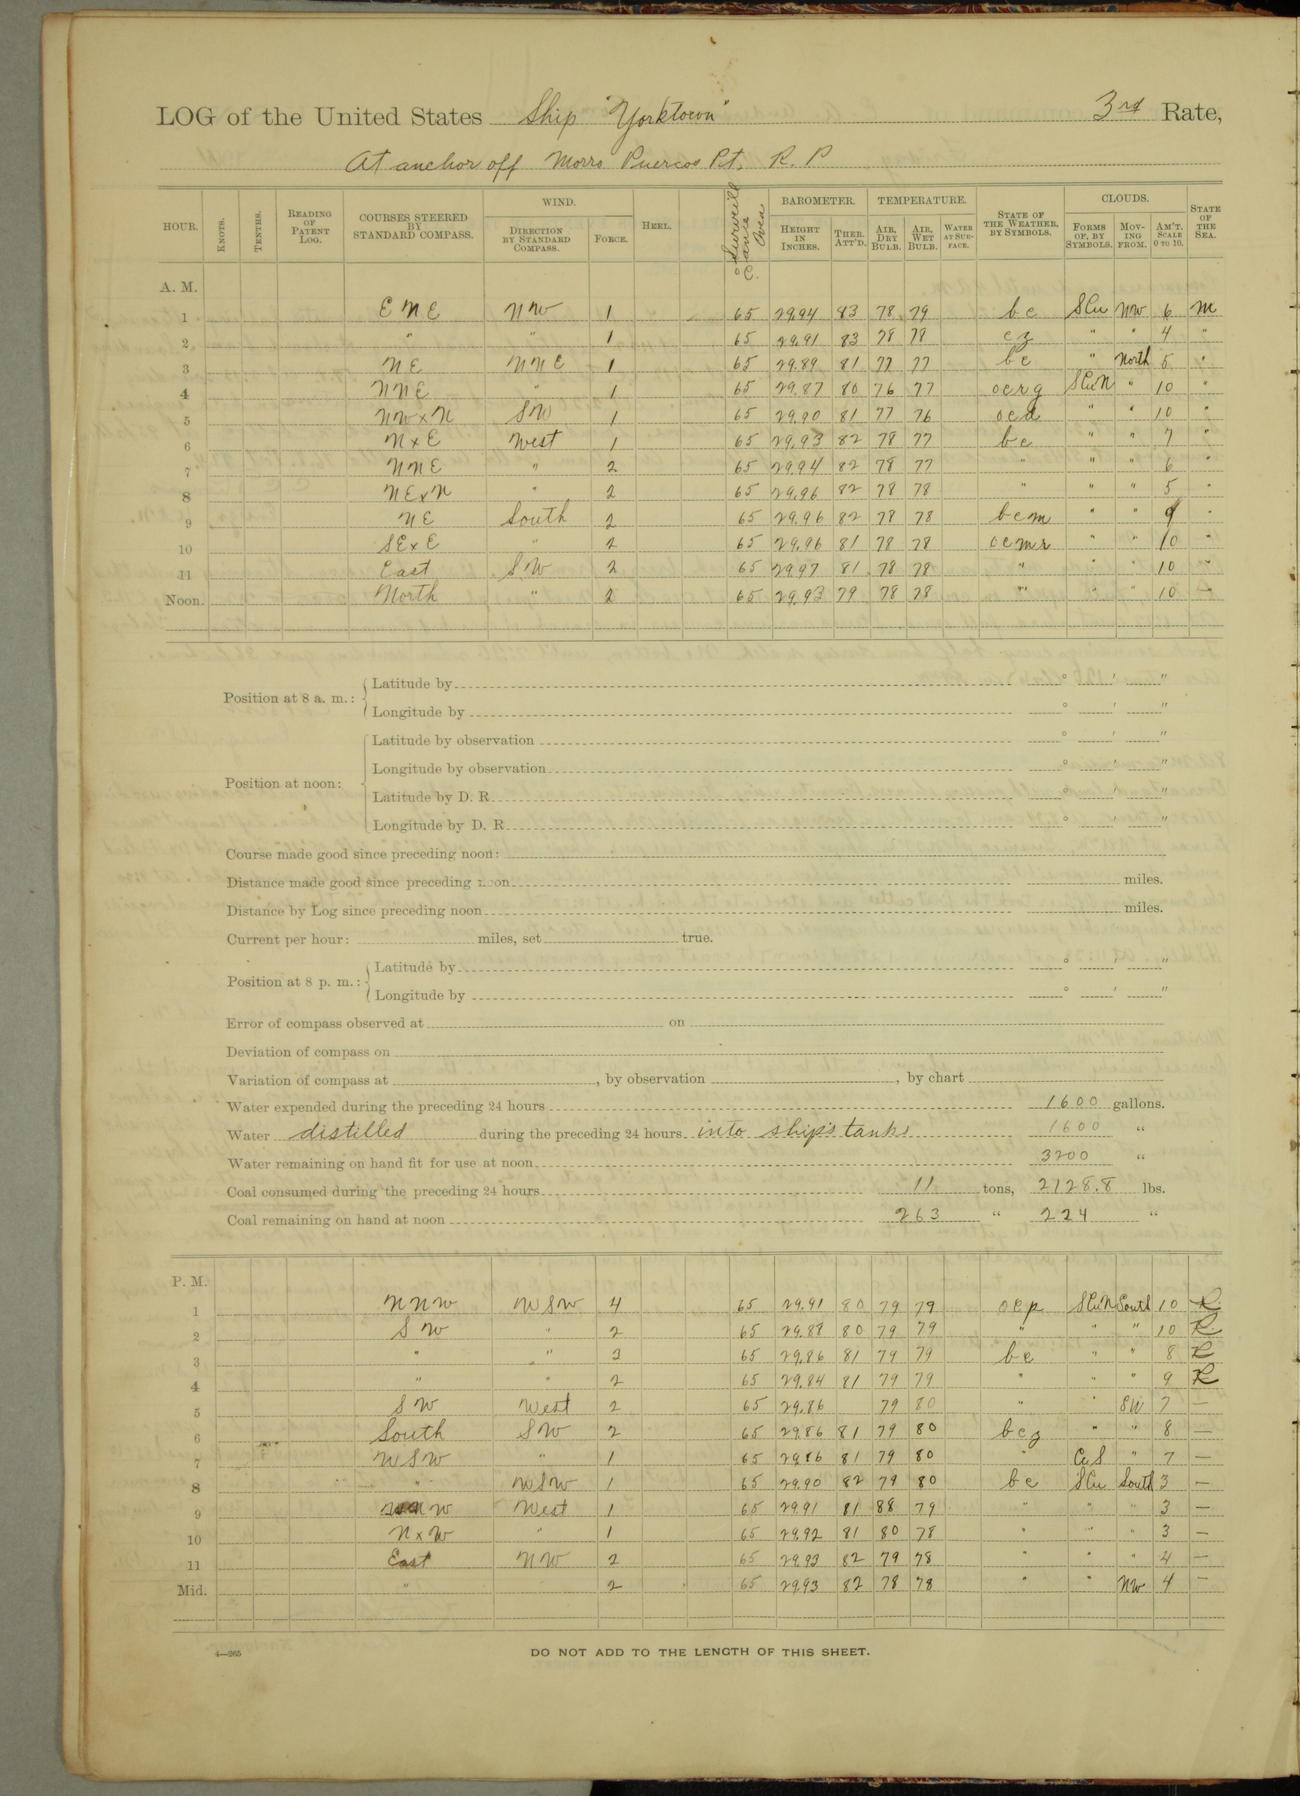 LOG of the United States Ship "Yorktown" 3rd Rate,
At anchor off Morro Puercos Pt. R. P
HOUR. KNOTS. TENTHS. READING OF PATENT LOG. COURSES STEERED BY STANDARD COMPASS. WIND. DIRECTION BY STANDARD COMPASS. FORCE. HEEL. BAROMETER. HEIGHT IN INCHES. THER. ATT'D. TEMPERATURE. AIR, DRY BULB. AIR, WET BULB. WATER AT SURFACE. STATE OF THE WEATHER, BY SYMBOLS. CLOUDS. FORMS OF, BY SYMBOLS. MOVING FROM. AM'T. SCALE 0 TO 10. STATE OF THE SEA.
A. M.
1 ENE NW 1 65 29.94 83 78 79 bc SCu NW 6 M
2 " " 1 65 29.91 83 78 78 cz " " 4 "
3 NE NNE 1 65 29.89 81 77 77 bc " North 5 "
4 NNE " 1 65 29.87 80 76 77 ocrg SCuN " 10 "
5 NWxN SW 1 65 29.90 81 77 76 ocd " " 10 "
6 NxE West 1 65 29.93 82 78 77 bc " " 7 "
7 NNE " 2 65 29.94 82 78 77 " " " 6 "
8 NExN " 2 65 29.96 82 78 78 " " " 5 "
9 NE South 2 65 29.96 82 78 78 bcm " " 9 "
10 SExE " 2 65 29.96 81 78 78 ocmr " " 10 "
11 East SW 2 65 29.97 81 78 78 " " " 10 "
Noon. North " 2 65 29.93 79 78 78 " " " 10 —
Position at 8 a. m.: Latitude by ° ′ ″
Longitude by ° ′ ″
Position at noon: Latitude by observation ° ′ ″
Longitude by observation ° ′ ″
Latitude by D. R. ° ′ ″
Longitude by D. R. ° ′ ″
Course made good since preceding noon:
Distance made good since preceding noon miles.
Distance by Log since preceding noon miles.
Current per hour: miles, set true.
Position at 8 p. m.: Latitude by ° ′ ″
Longitude by ° ′ ″
Error of compass observed at on
Deviation of compass on
Variation of compass at , by observation , by chart
Water expended during the preceding 24 hours 1600 gallons.
Water distilled during the preceding 24 hours into ship's tanks 1600 "
Water remaining on hand fit for use at noon 3200 "
Coal consumed during the preceding 24 hours 11 tons, 2128.8 lbs.
Coal remaining on hand at noon 263 " 224 "
P. M.
1 NNW WSW 4 65 29.91 80 79 79 ocp SCuN South 10 R
2 SW " 2 65 29.88 80 79 79 " " " 10 R
3 " " 3 65 29.86 81 79 79 bc " " 8 R
4 " " 2 65 29.84 81 79 79 " " " 9 R
5 SW West 2 65 29.86 79 80 " " SW 7 —
6 South SW 2 65 29.86 81 79 80 bcq " " 8 —
7 WSW " 1 65 29.86 81 79 80 " CuS " 7 —
8 " WSW 1 65 29.90 82 79 80 bc SCu South 3 —
9 W West 1 65 29.91 81 88 79 " " " 3 —
10 NxW " 1 65 29.92 81 80 78 " " " 3 —
11 East NW 2 65 29.93 82 79 78 " " " 4 —
Mid. " 2 65 29.93 82 78 78 " " NW 4 —
4—265
DO NOT ADD TO THE LENGTH OF THIS SHEET.